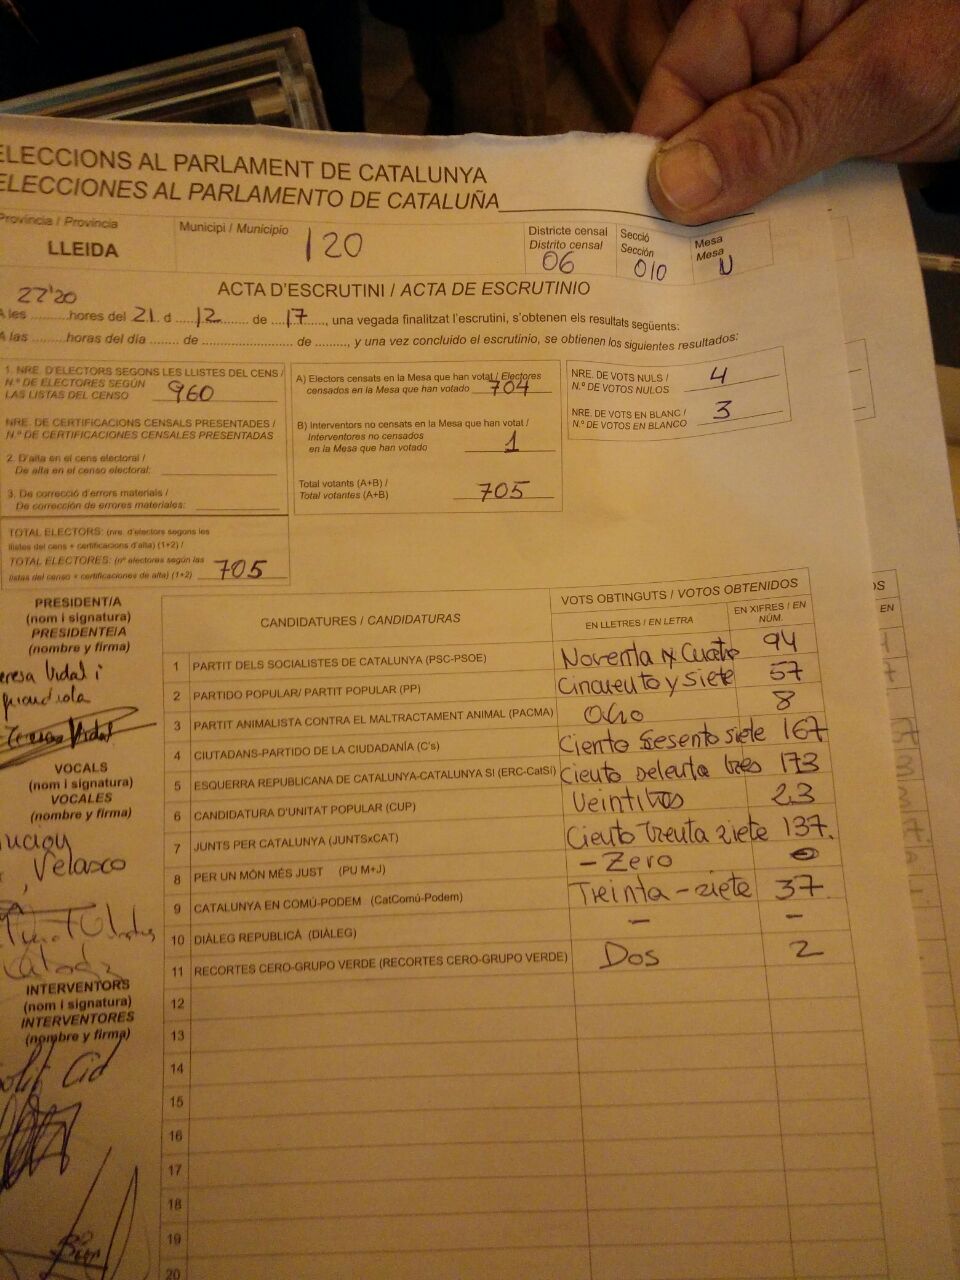 ELECCIONS AL PARLAMENT DE CATALUNYA
ELECCIONES AL PARLAMENTO DE CATALUÑA
Provincia / Provincia
LLEIDA
Municipi / Municipio
120
Districte censal
Distrito censal
06
Secció
Sección
010
Mesa
Mesa
U
22'20
ACTA D'ESCRUTINI / ACTA DE ESCRUTINIO
A les ..........hores del 21 d ... 12 ... de ... 17 ..., una vegada finalitzat l'escrutini, s'obtenen els resultats següents:
A las ........horas del día ........ de .................... de ........, y una vez concluido el escrutinio, se obtienen los siguientes resultados:
1. NRE. D'ELECTORS SEGONS LES LLISTES DEL CENS /
N.º DE ELECTORES SEGÚN
LAS LISTAS DEL CENSO
960
NRE. DE CERTIFICACIONS CENSALS PRESENTADES /
N.º DE CERTIFICACIONES CENSALES PRESENTADAS
2. D'alta en el cens electoral /
De alta en el censo electoral:
3. De correcció d'errors materials /
De corrección de errores materiales:
TOTAL ELECTORS: (nre. d'electors segons les
llistes del cens + certificacions d'alta) (1+2) /
TOTAL ELECTORES: (nº electores según las
listas del censo + certificaciones de alta) (1+2)
705
A) Electors censats en la Mesa que han votat / Electores
censados en la Mesa que han votado
704
B) Interventors no censats en la Mesa que han votat /
Interventores no censados
en la Mesa que han votado
1
Total votants (A+B) /
Total votantes (A+B)
705
NRE. DE VOTS NULS /
N.º DE VOTOS NULOS
4
NRE. DE VOTS EN BLANC /
N.º DE VOTOS EN BLANCO
3
PRESIDENT/A
(nom i signatura)
PRESIDENTE/A
(nombre y firma)
eresa Vidal i
Teresa Vidal
VOCALS
(nom i signatura)
VOCALES
(nombre y firma)
, Velasco
INTERVENTORS
(nom i signatura)
INTERVENTORES
(nombre y firma)
Cid
CANDIDATURES / CANDIDATURAS
VOTS OBTINGUTS / VOTOS OBTENIDOS
EN LLETRES / EN LETRA
EN XIFRES / EN
NÚM.
1 PARTIT DELS SOCIALISTES DE CATALUNYA (PSC-PSOE) Noventa y Cuatro 94
2 PARTIDO POPULAR/ PARTIT POPULAR (PP) Cincuenta y siete 57
3 PARTIT ANIMALISTA CONTRA EL MALTRACTAMENT ANIMAL (PACMA) Ocho 8
4 CIUTADANS-PARTIDO DE LA CIUDADANÍA (C's) Ciento sesenta siete 167
5 ESQUERRA REPUBLICANA DE CATALUNYA-CATALUNYA SI (ERC-CatSí) Ciento setenta tres 173
6 CANDIDATURA D'UNITAT POPULAR (CUP) Veintitres 23
7 JUNTS PER CATALUNYA (JUNTSxCAT) Ciento treuta siete 137.
8 PER UN MÓN MÉS JUST (PU M+J) - Zero 0
9 CATALUNYA EN COMÚ-PODEM (CatComú-Podem) Treinta - siete 37
10 DIÀLEG REPUBLICÀ (DIÀLEG) - -
11 RECORTES CERO-GRUPO VERDE (RECORTES CERO-GRUPO VERDE) Dos 2
12
13
14
15
16
17
18
19
20